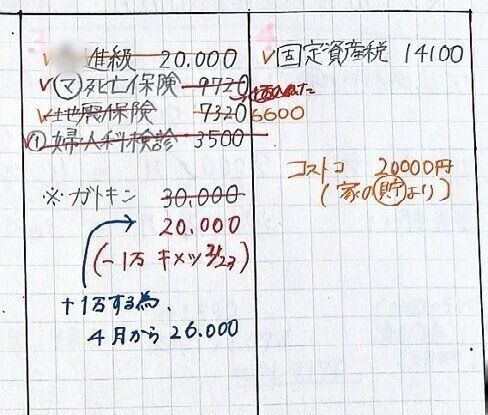 3.
進級 20.000
✓㋮死亡保険 9720
✓地震保険 7320 6600
✓① 婦人科検診 3500
※ガトキン 30.000
20.000
(-1万 キメツ 2/23)
+1万する為、
4月から 26.000
4.
✓固定資産税 14100
コストコ 20000円
(家の貯より)